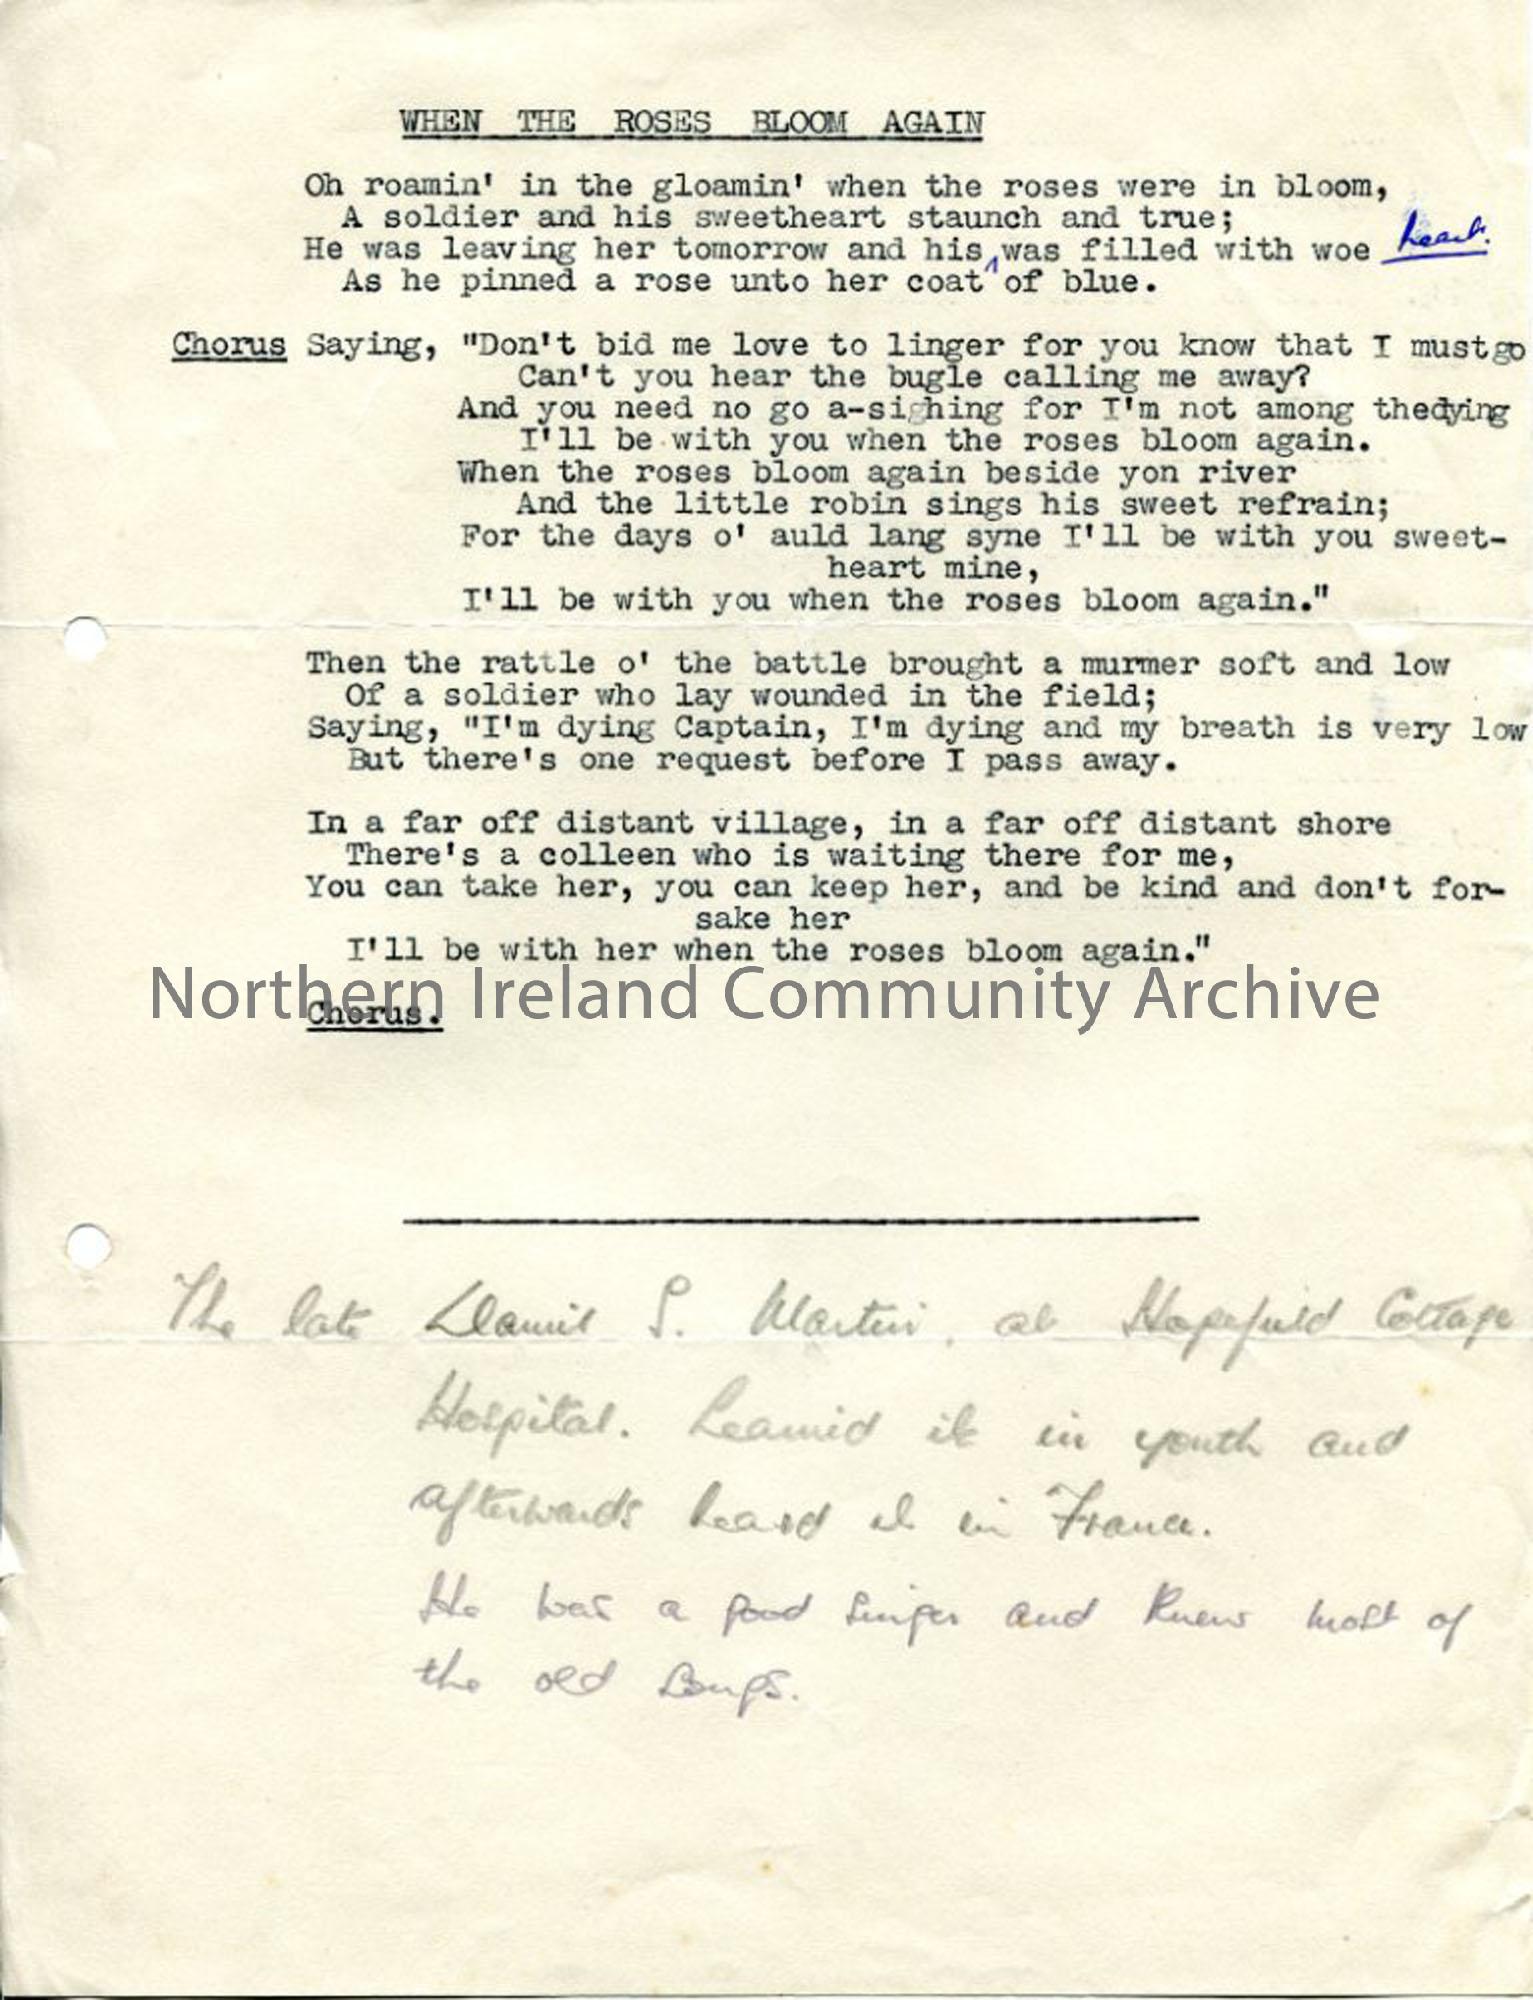 WHEN THE ROSES BLOOM AGAIN
Oh roamin' in the gloamin' when the roses were in bloom,
A soldier and his sweetheart staunch and true;
He was leaving her tomorrow and his ‸ was filled with woe heart.
As he pinned a rose unto her coat of blue.
Chorus Saying, "Don't bid me love to linger for you know that I must go
Can't you hear the bugle calling me away?
And you need no go a-sighing for I'm not among thedying
I'll be with you when the roses bloom again.
When the roses bloom again beside yon river
And the little robin sings his sweet refrain;
For the days o' auld lang syne I'll be with you sweet-
heart mine,
I'll be with you when the roses bloom again."
Then the rattle o' the battle brought a murmer soft and low
Of a soldier who lay wounded in the field;
Saying, "I'm dying Captain, I'm dying and my breath is very low
But there's one request before I pass away.
In a far off distant village, in a far off distant shore
There's a colleen who is waiting there for me,
You can take her, you can keep her, and be kind and don't for-
sake her
I'll be with her when the roses bloom again."
Northern Ireland Community Archive
Chorus.
The late Daniel S. Martin, at Hopefield Cottage
Hospital. Learned it in youth and
afterwards heard it in France.
He was a good singer and knew most of
the old songs.